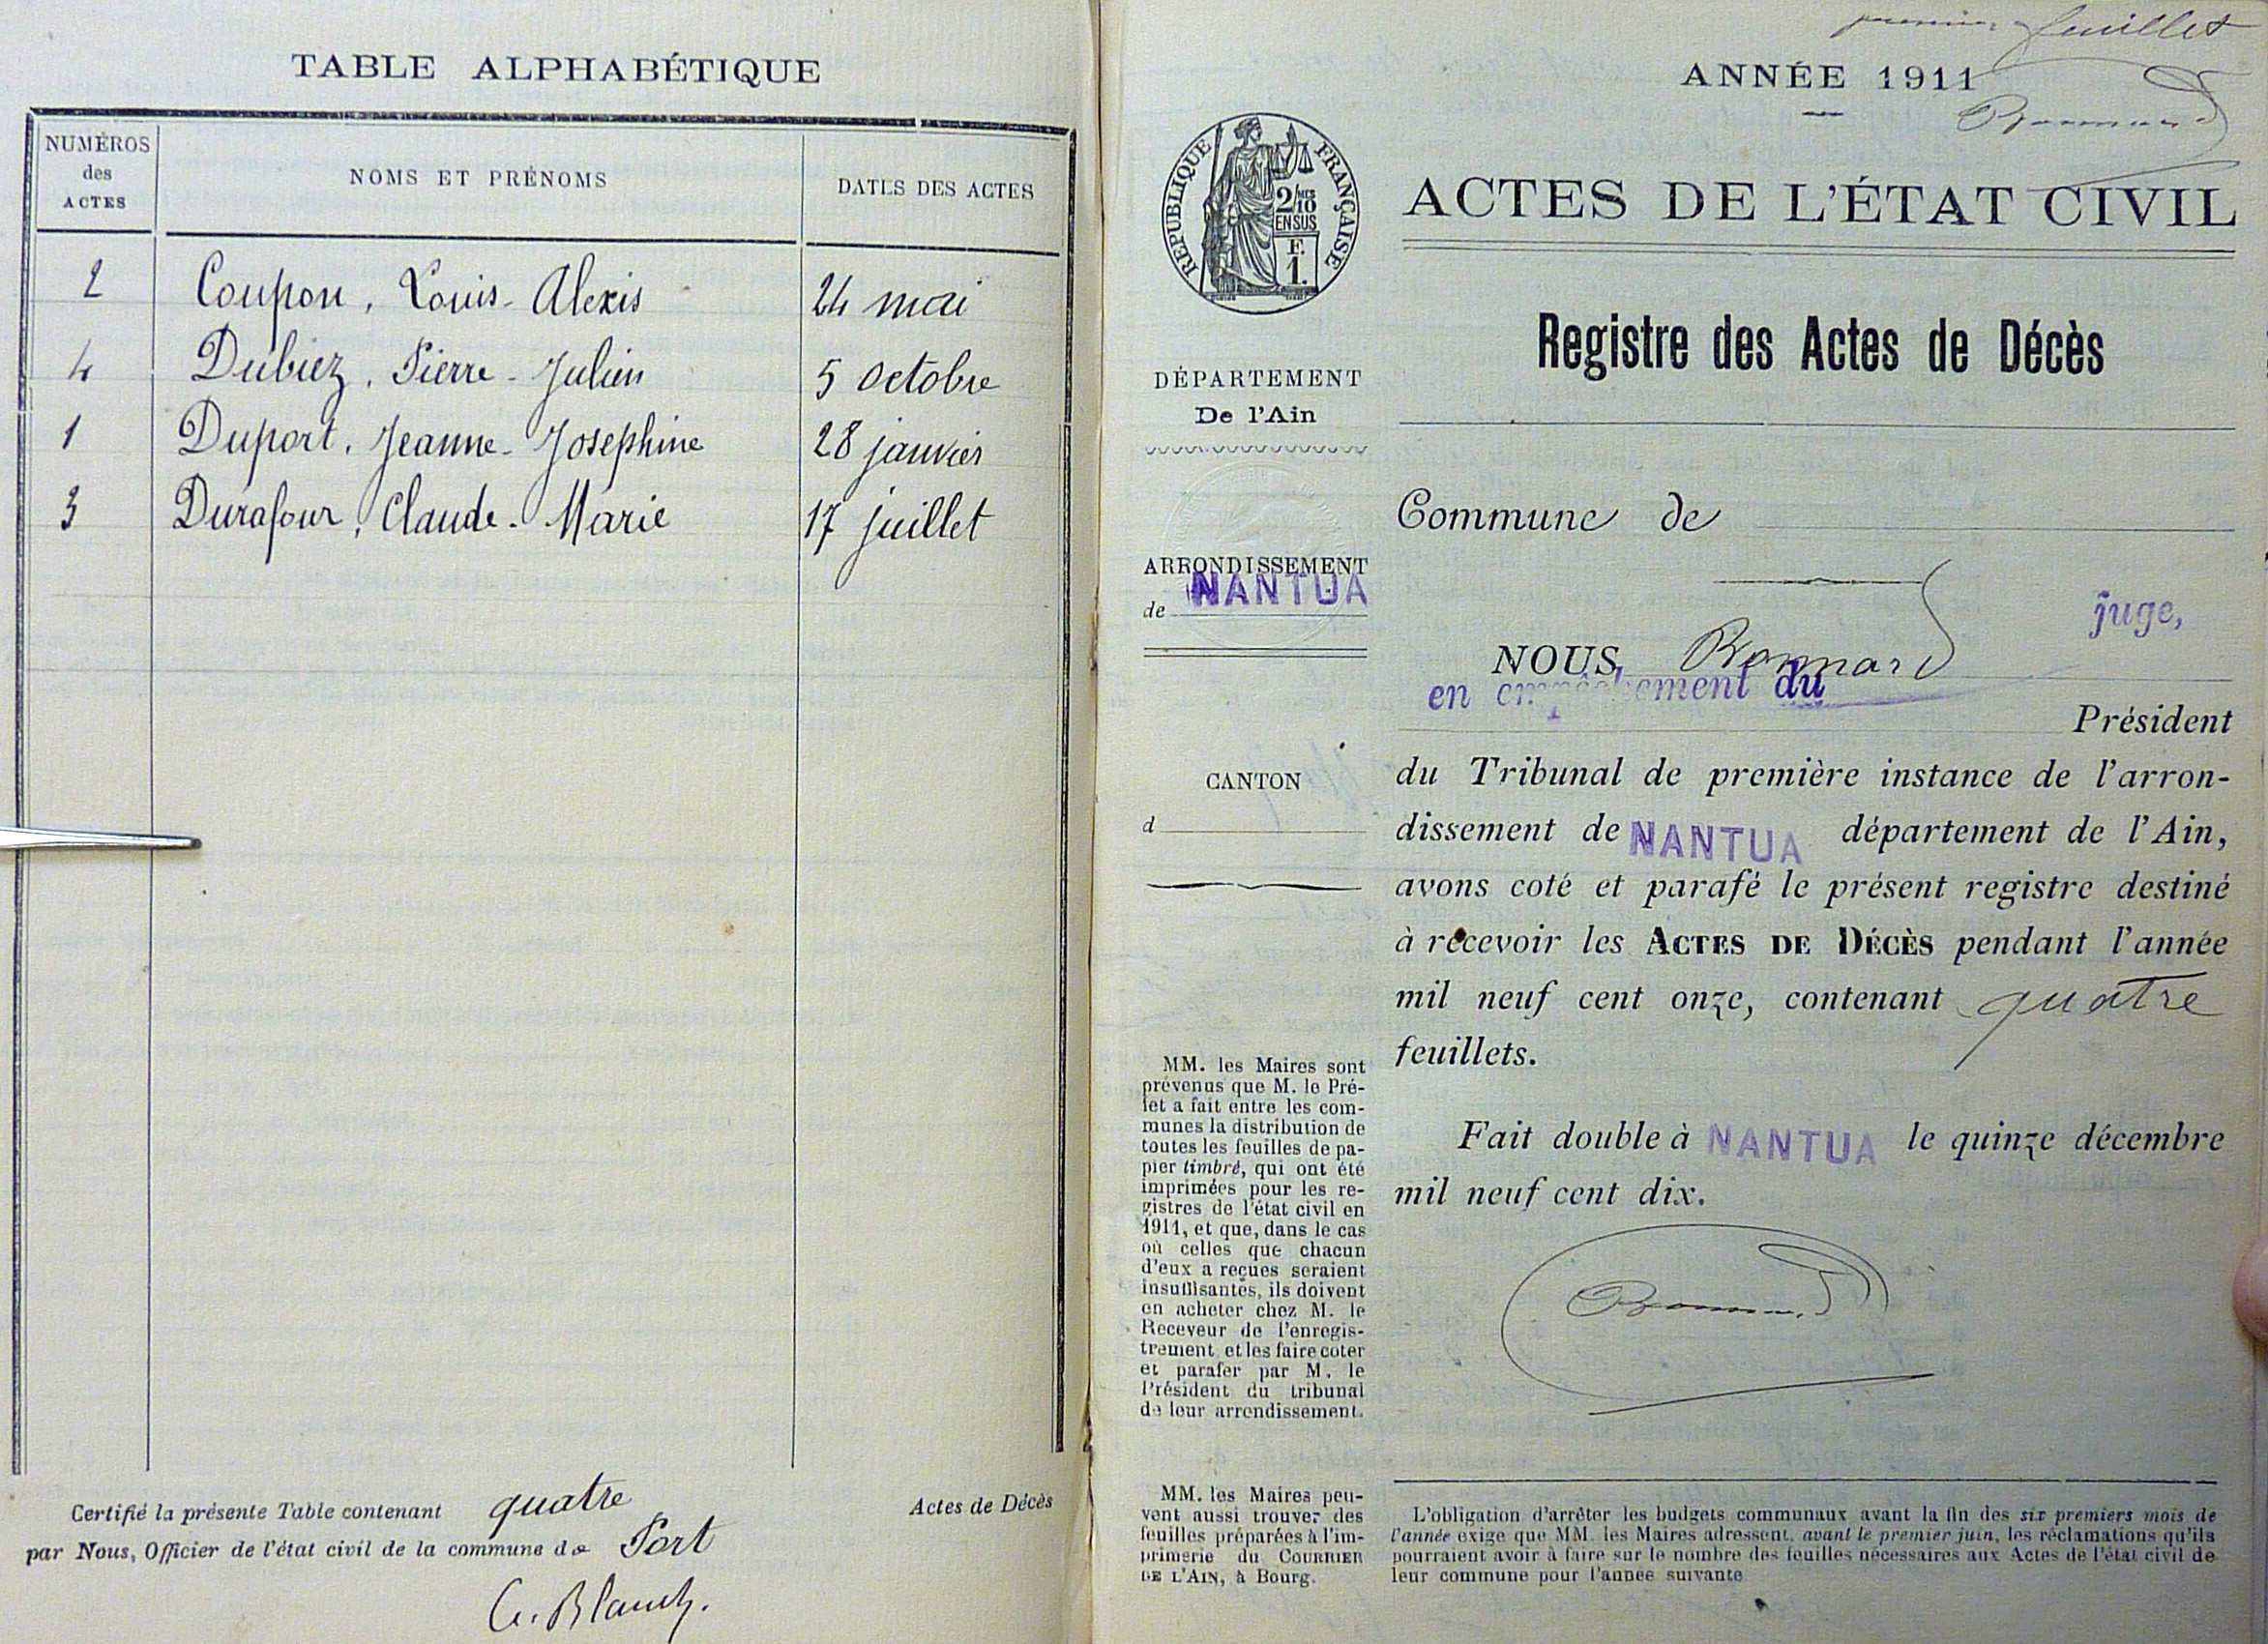 TABLE ALPHABÉTIQUE
NUMÉROS
des
ACTES
NOMS ET PRÉNOMS
DATES DES ACTES
2 Coupon, Louis-Alexis 24 mai
4 Dubiez, Pierre-Julien 5 octobre
1 Duport, Jeanne-Josephine 28 janvier
3 Durafour, Claude-Marie 17 juillet
Certifié la présente Table contenant quatre Actes de Décès
par Nous, Officier de l'état civil de la commune de Port
premier feuillet
ANNÉE 1911
Bonnard
ACTES DE L'ÉTAT CIVIL
RÉPUBLIQUE FRANÇAISE
2/10
EN SUS
F.
1.
DÉPARTEMENT
De l'Ain
ARRONDISSEMENT
de NANTUA
CANTON
d
MM. les Maires sont
prévenus que M. le Pré-
fet a fait entre les com-
munes la distribution de
toutes les feuilles de pa-
pier timbré, qui ont été
imprimées pour les re-
gistres de l'état civil en
1911, et que, dans le cas
où celles que chacun
d'eux a reçues seraient
insuffisantes, ils doivent
en acheter chez M. le
Receveur de l'enregis-
trement et les faire coter
et parafer par M. le
Président du tribunal
de leur arrondissement.
MM. les Maires peu-
vent aussi trouver des
feuilles préparées à l'im-
primerie du COURRIER
DE L'AIN, à Bourg.
Registre des Actes de Décès
Commune de
NOUS, Bonnard juge,
en empêchement du
Président
du Tribunal de première instance de l'arron-
dissement de NANTUA département de l'Ain,
avons coté et parafé le présent registre destiné
à recevoir les ACTES DE DÉCÈS pendant l'année
mil neuf cent onze, contenant quatre
feuillets.
Fait double à NANTUA le quinze décembre
mil neuf cent dix.
Bonnard
L'obligation d'arrêter les budgets communaux avant la fin des six premiers mois de
l'année exige que MM. les Maires adressent, avant le premier juin, les réclamations qu'ils
pourraient avoir à faire sur le nombre des feuilles nécessaires aux Actes de l'état civil de
leur commune pour l'année suivante